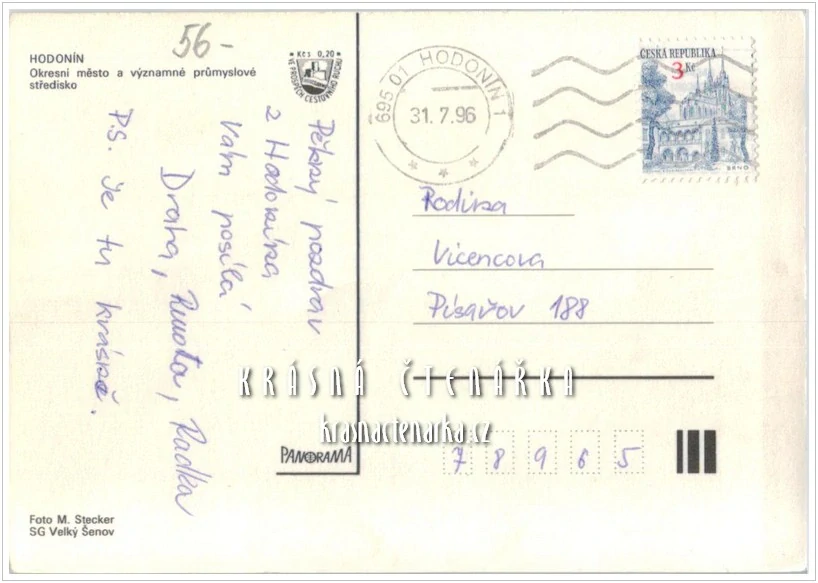 56-
HODONÍN
Okresní město a významné průmyslové
středisko
Kčs 0,20
VE PROSPĚCH CESTOVNÍHO RUCHU
695 01 HODONÍN 1
31.7.96
ČESKÁ REPUBLIKA
3 Kč
BRNO
Pěkný pozdrav
z Hodonína
Vám posílá
Draha, Radka
P.S. Je tu krásně.
Rodina
Vicencova
Písařov 188
KRÁSNÁ ČTENÁŘKA
krasnactenarka.cz
PANORAMA
78965
Foto M. Stecker
SG Velký Šenov